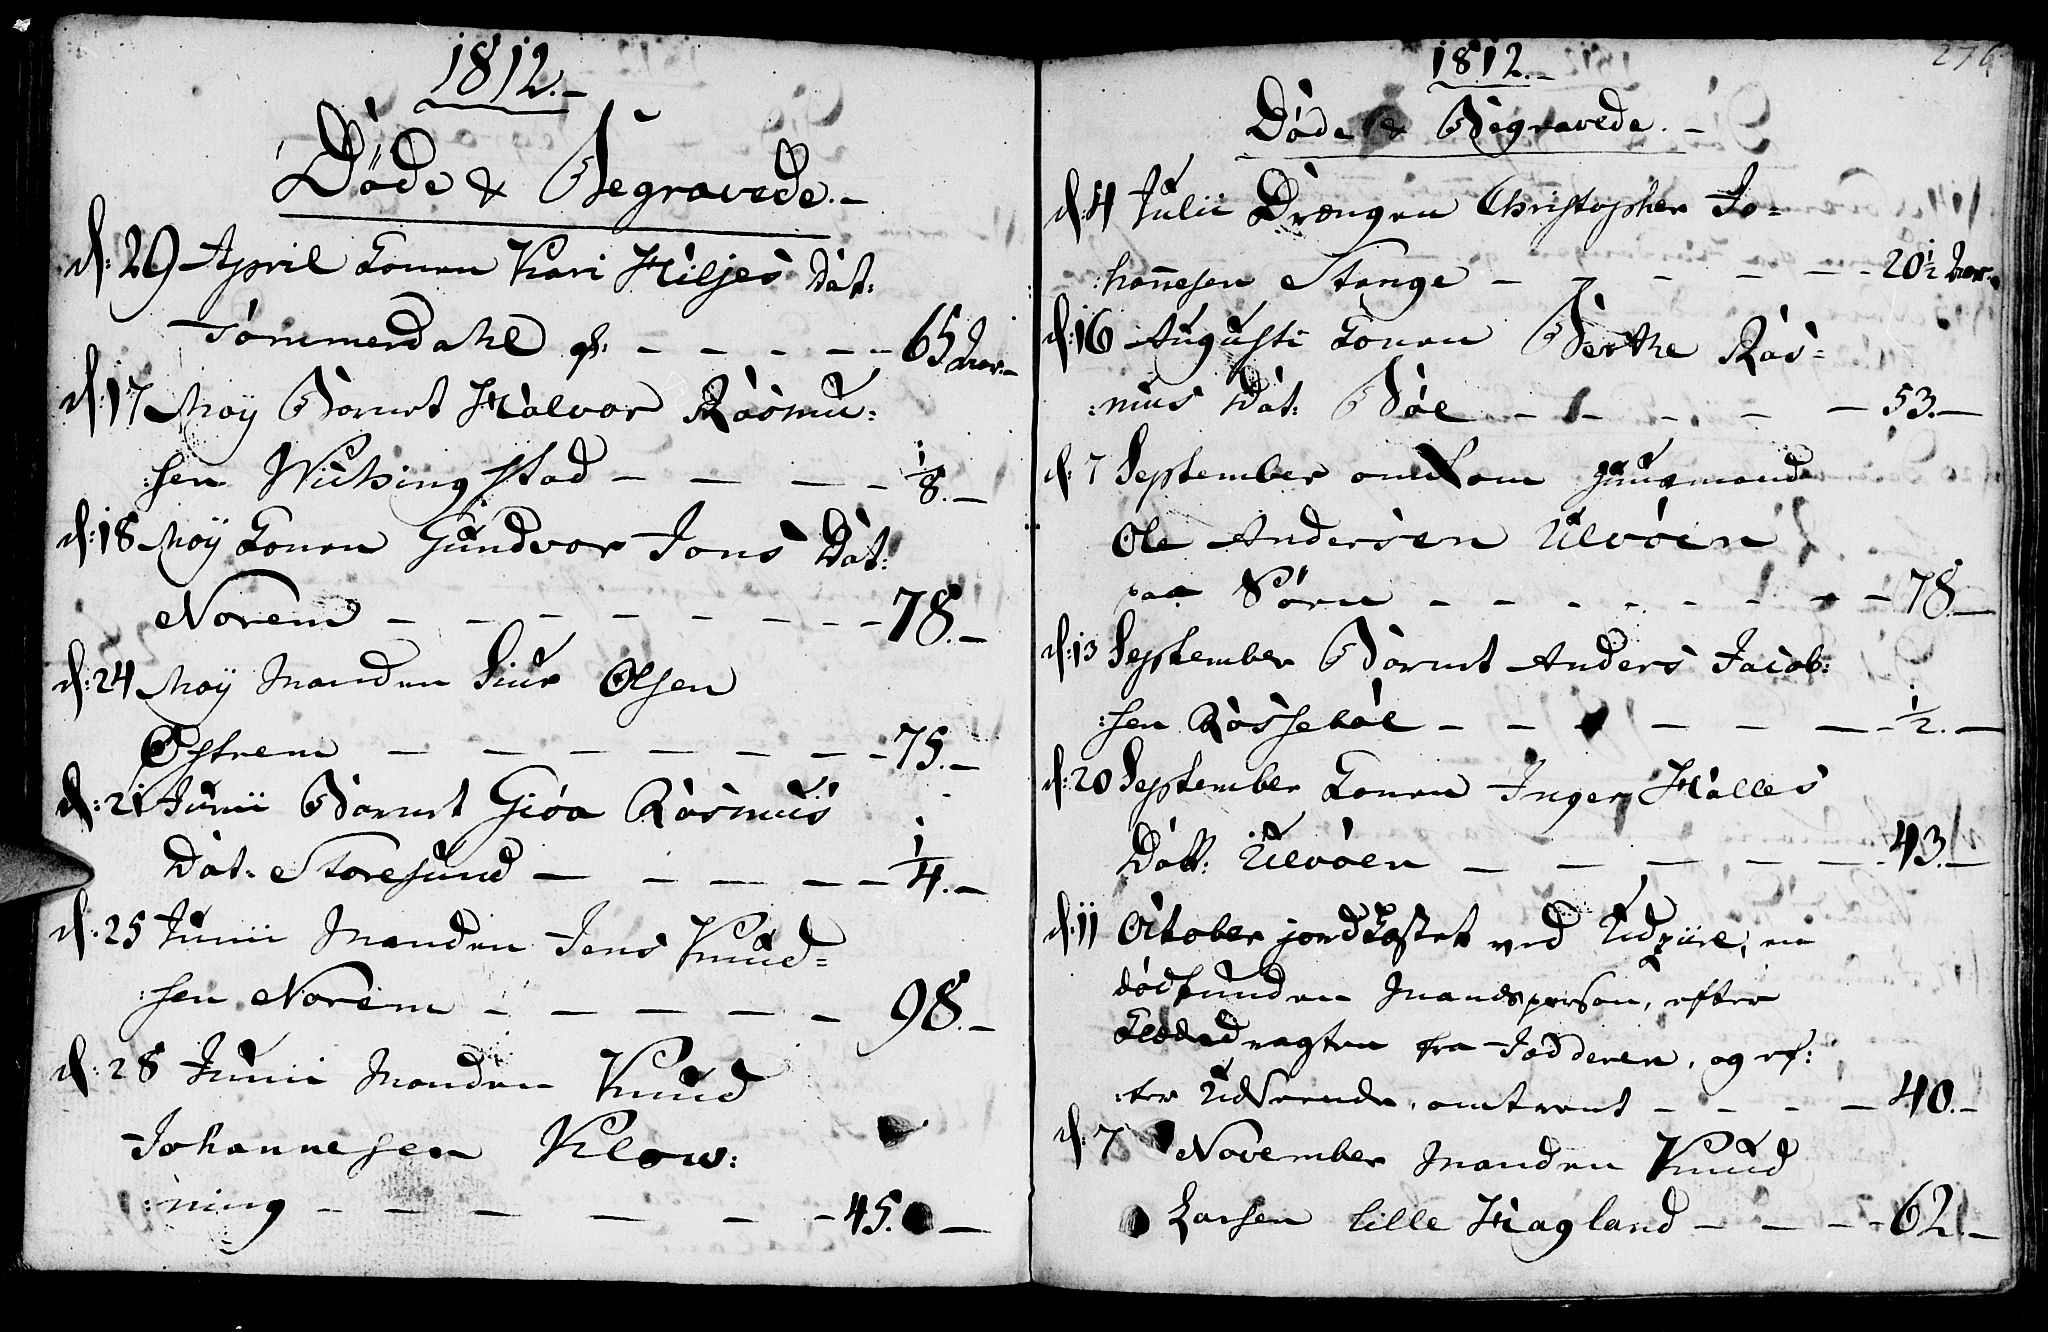 1812.-
Døde & Begravede.-
d: 29 April Konen Kari Kiljes Dat:
Tømmerdahl - - - - - 65 Aar.-
d: 17 May Barnet Halvor Rasmu:
:sen Wichingstad - - - - 1/8.-
d: 18 May Konen Gundvor Jons Dat:
Norem - - - - - - - - 78.-
d: 24 May Manden Siur Olsen
Østrem - - - - - - - 75.-
d: 21 Junii Barnet Giøa Rasmus
Dat. Storesund - - - - - 1/4.-
d. 25 Junii Manden Jens Knud=
:sen Norem - - - - - - 98.-
d: 28 Junii Manden Knud
Johannesen Klow:
:ning - - - - - - 45. -
1812.-
276
Døde & Begravede.-
d: 4 Julii Drængen Christopher Jo=
:hannesen Stange - - - - - - 20 1/2 Aar.-
d: 16 Augusti Konen Berthe Ras=
:mus Dat: Bøe - - - - - 53.-
d: 7 September omkom Huusmand
Ole Andersen Ulvøen
paa Søen - - - - - - - - 78.-
d: 13 September Barnet Anders Jacob:
:sen Røssebøe - - - - - - 1/2.-
d: 20 September Konen Inger Halles
Datt: Ulvøen - - - - - 43.-
d: 11 October jordkastet ved Udziire, en
dødfunden Mandsperson, efter
Klædedragten fra Jædderen, og ef:
:ter Udseende, omtrent - - - - 40.-
d: 7 November Manden Knud
Larsen lille Hagland - - - - 62.-